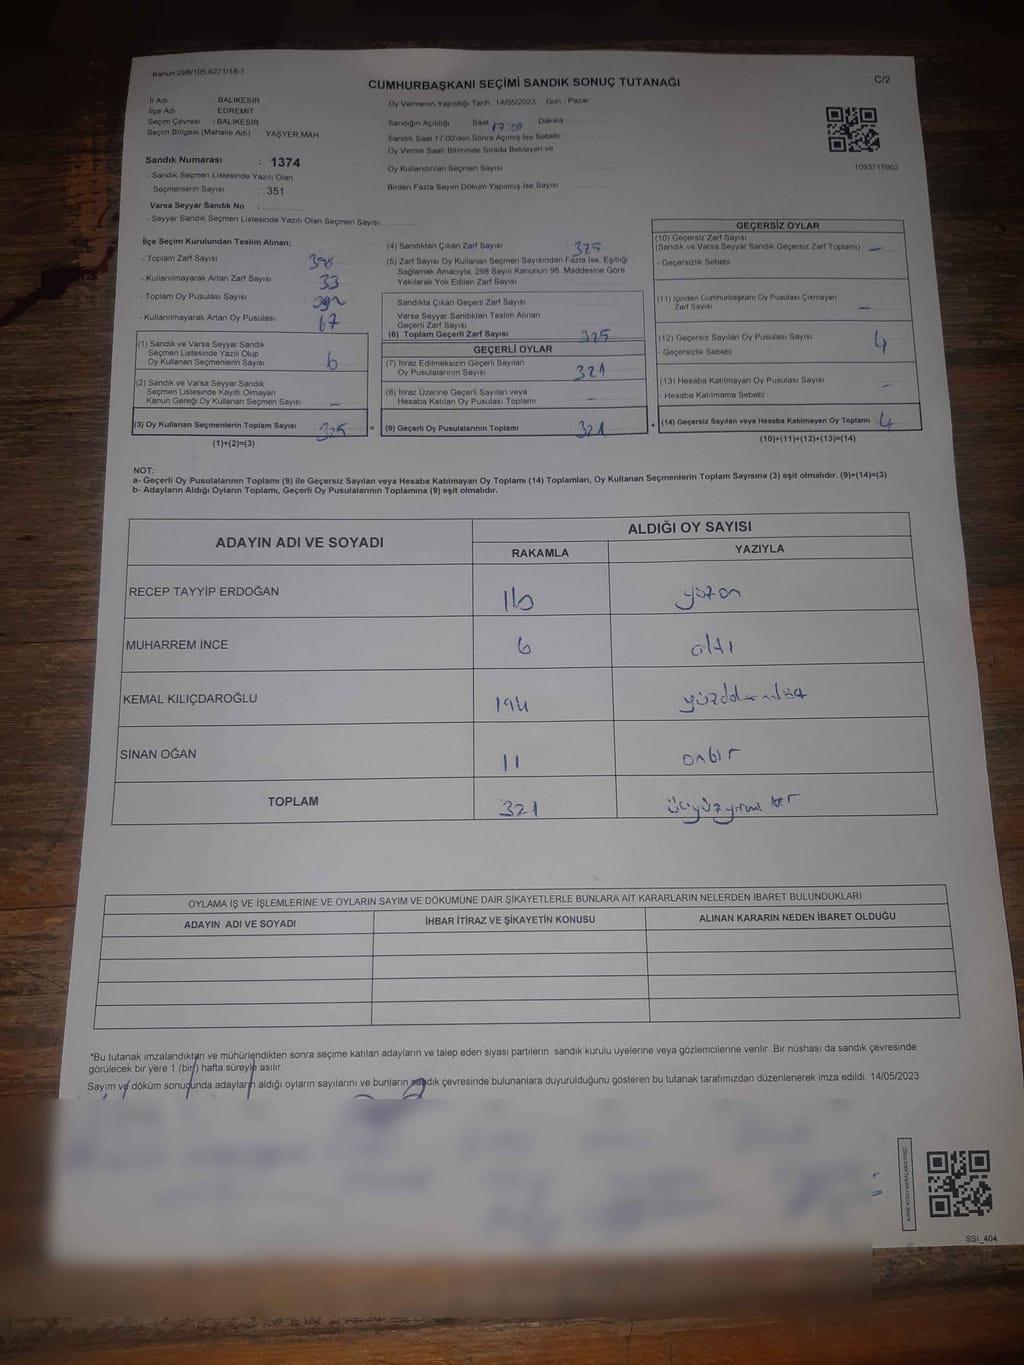 Kanun:298/105,6271/18-1
CUMHURBAŞKANI SEÇİMİ SANDIK SONUÇ TUTANAĞI
C/2
İl Adı BALIKESİR
İlçe Adı EDREMİT
Seçim Çevresi : BALIKESİR
Seçim Bölgesi (Mahalle Adı) : YAŞYER MAH.
Sandık Numarası : 1374
- Sandık Seçmen Listesinde Yazılı Olan
Seçmenlerin Sayısı : 351
Varsa Seyyar Sandık No :
- Seyyar Sandık Seçmen Listesinde Yazılı Olan Seçmen Sayısı:
Oy Vermenin Yapıldığı Tarih :14/05/2023 Gün : Pazar
Sandığın Açıldığı Saat 17:00 Dakika
Sandık Saat 17:00'den Sonra Açılmış İse Sebebi
Oy Verme Saati Bitiminde Sırada Bekleyen ve
Oy Kullandırılan Seçmen Sayısı
Birden Fazla Sayım Döküm Yapılmış İse Sayısı
1093715902
İlçe Seçim Kurulundan Teslim Alınan;
- Toplam Zarf Sayısı
- Kullanılmayarak Artan Zarf Sayısı 33
- Toplam Oy Pusulası Sayısı 392
- Kullanılmayarak Artan Oy Pusulası 67
(1) Sandık ve Varsa Seyyar Sandık
Seçmen Listesinde Yazılı Olup
Oy Kullanan Seçmenlerin Sayısı 6
(2) Sandık ve Varsa Seyyar Sandık
Seçmen Listesinde Kayıtlı Olmayan
Kanun Gereği Oy Kullanan Seçmen Sayısı –
(3) Oy Kullanan Seçmenlerin Toplam Sayısı 325 =
(1)+(2)=(3)
(4) Sandıktan Çıkan Zarf Sayısı 325
(5) Zarf Sayısı Oy Kullanan Seçmen Sayısından Fazla İse, Eşitliği
Sağlamak Amacıyla, 298 Sayılı Kanunun 98. Maddesine Göre
Yakılarak Yok Edilen Zarf Sayısı
Sandıkta Çıkan Geçerli Zarf Sayısı
Varsa Seyyar Sandıktan Teslim Alınan
Geçerli Zarf Sayısı
(6) Toplam Geçerli Zarf Sayısı 325
GEÇERLİ OYLAR
(7) İtiraz Edilmeksizin Geçerli Sayılan
Oy Pusulalarının Sayısı 321
(8) İtiraz Üzerine Geçerli Sayılan veya
Hesaba Katılan Oy Pusulası Toplamı –
(9) Geçerli Oy Pusulalarının Toplamı 321 +
GEÇERSİZ OYLAR
(10) Geçersiz Zarf Sayısı
(Sandık ve Varsa Seyyar Sandık Geçersiz Zarf Toplamı) –
- Geçersizlik Sebebi
(11) İçinden Cumhurbaşkanı Oy Pusulası Çıkmayan
Zarf Sayısı –
(12) Geçersiz Sayılan Oy Pusulası Sayısı 4
- Geçersizlik Sebebi
(13) Hesaba Katılmayan Oy Pusulası Sayısı –
- Hesaba Katılmama Sebebi
(14) Geçersiz Sayılan veya Hesaba Katılmayan Oy Toplamı 4
(10)+(11)+(12)+(13)=(14)
NOT:
a- Geçerli Oy Pusulalarının Toplamı (9) ile Geçersiz Sayılan veya Hesaba Katılmayan Oy Toplamı (14) Toplamları, Oy Kullanan Seçmenlerin Toplam Sayısına (3) eşit olmalıdır. (9)+(14)=(3)
b- Adayların Aldığı Oyların Toplamı, Geçerli Oy Pusulalarının Toplamına (9) eşit olmalıdır.
ADAYIN ADI VE SOYADI
ALDIĞI OY SAYISI
RAKAMLA YAZIYLA
RECEP TAYYİP ERDOĞAN 110 yüzon
MUHARREM İNCE 6 altı
KEMAL KILIÇDAROĞLU 194 yüzdoksandört
SİNAN OĞAN 11 onbir
TOPLAM 321 üçyüzyirmi bir
OYLAMA İŞ VE İŞLEMLERİNE VE OYLARIN SAYIM VE DÖKÜMÜNE DAİR ŞİKAYETLERLE BUNLARA AİT KARARLARIN NELERDEN İBARET BULUNDUKLARI
ADAYIN ADI VE SOYADI İHBAR İTİRAZ VE ŞİKAYETİN KONUSU ALINAN KARARIN NEDEN İBARET OLDUĞU
*Bu tutanak imzalandıktan ve mühürlendikten sonra seçime katılan adayların ve talep eden siyasi partilerin sandık kurulu üyelerine veya gözlemcilerine verilir. Bir nüshası da sandık çevresinde
görülecek bir yere 1 (bir) hafta süreyle asılır.
Sayım ve döküm sonucunda adayların aldığı oyların sayılarını ve bunların sandık çevresinde bulunanlara duyurulduğunu gösteren bu tutanak tarafımızdan düzenlenerek imza edildi. 14/05/2023
KARE KODU KARALAMAYINIZ!
SSI_404